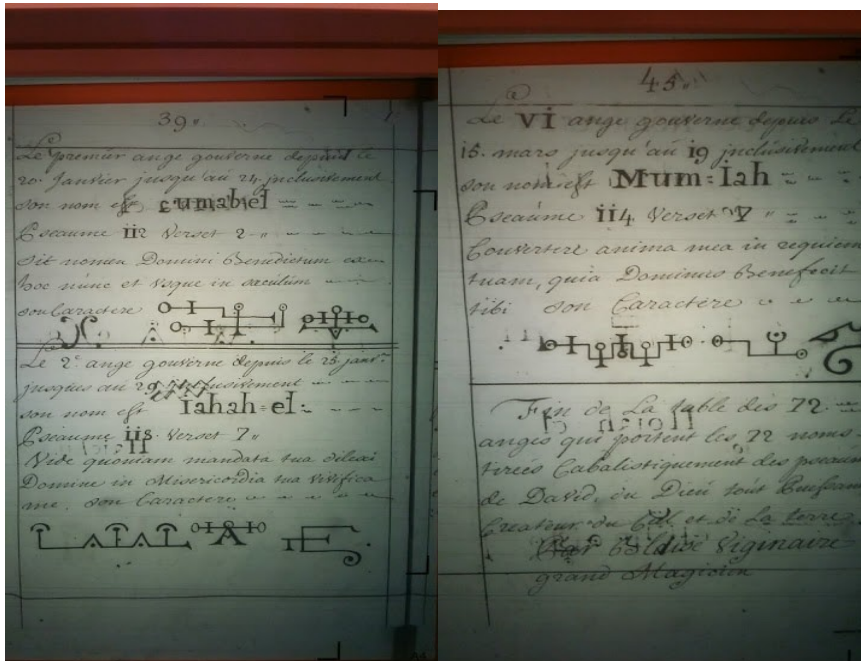 39..
Le premier ange gouverne depuis le
20. Janvier jusqu'au 24 inclusivement
son nom est cumabiel
Pseaume 112 Verset 2
Sit nomen Domini Benedictum ex
hoc nunc et Vsque in sæculum
son Caractere
Le 2e ange gouverne depuis le 25 janvr
jusques au 29 inclusivement
son nom est Iahah=el
Pseaume 118. Verset 7
Vide quoniam mandata tua dilexi
Domine in Misericordia tua vivifica
me, son Caractere
45
Le VI ange gouverne depuis Le
15. mars jusqu'au 19 inclusivement
son nom est Mum=Iah
Pseaume 114 Verset 7
Convertere anima mea in requiem
tuam, quia Dominus Benefecit
tibi son Caractere
Fin de La table des 72.
anges qui portent les 72 noms
tirées Cabalistiquement des pseau
de David, ou Dieu tout Puissant
Createur du Ciel et de La terre
Par Blaise Viginaire
grand Magicien